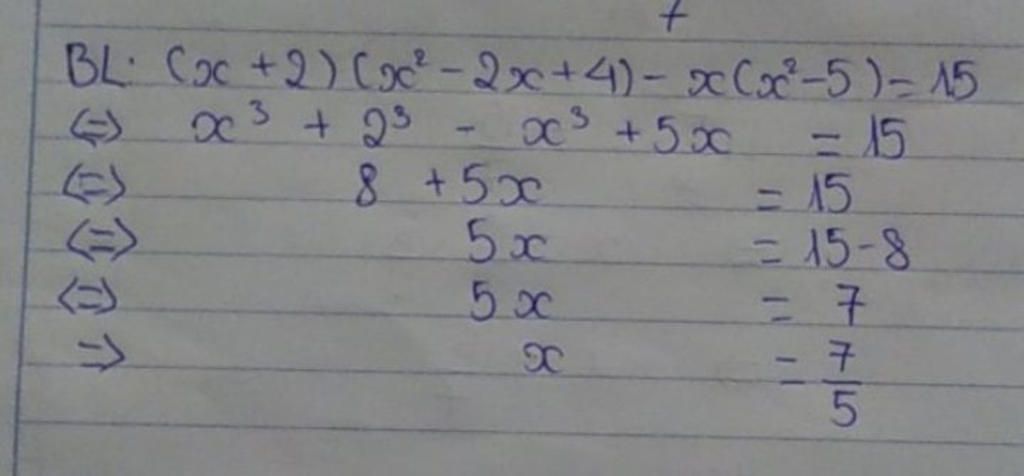 7
BL: (x + 2)(x² - 2x + 4) - x(x² - 5) = 15
<=> x³ + 2³ - x³ + 5x = 15
<=> 8 + 5x = 15
<=> 5x = 15 - 8
<=> 5x = 7
=> x = 7/5